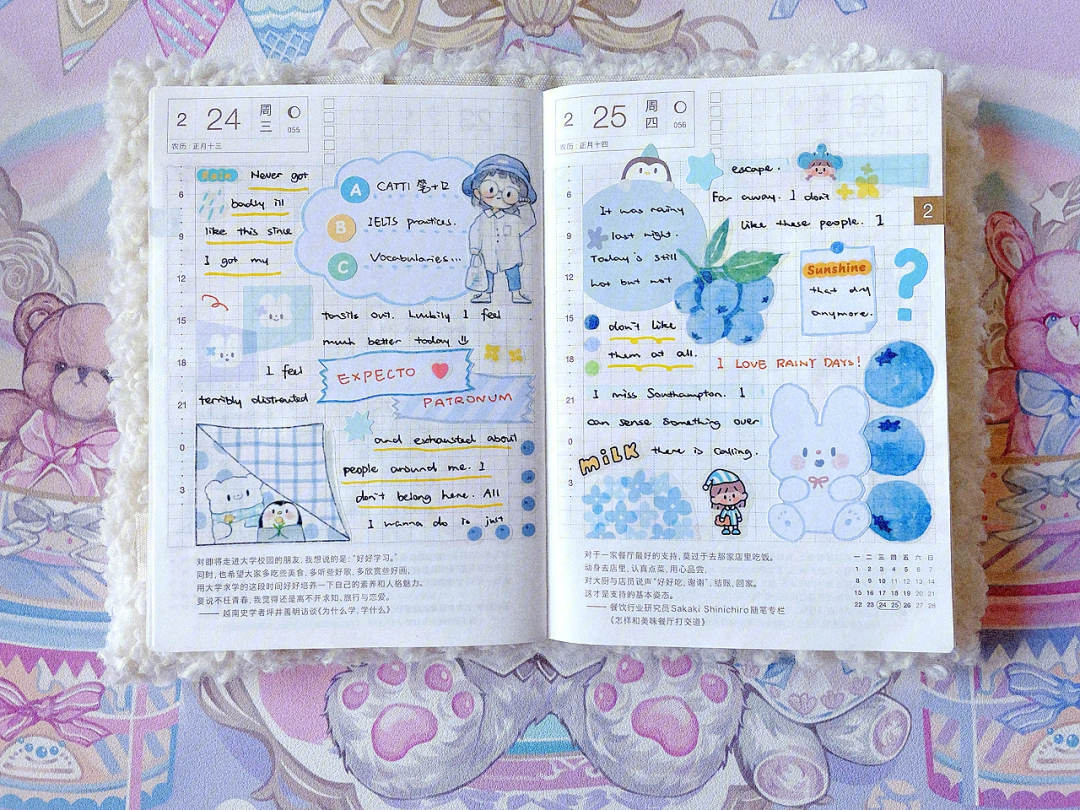 2 24 周三 055
农历:正月十三
Rain Never got
badly ill
like this since
I got my
A CATTI
B IELTS practices.
C Vocabularies...
tonsils out. Luckily I feel
much better today
I feel
EXPECTO
PATRONUM
terribly distracted
and exhausted about
people around me. I
don't belong here. All
I wanna do is just
6
9
12
15
18
21
0
3
对即将走进大学校园的朋友,我想说的是:“好好学习。”
同时,也希望大家多吃些美食,多听些好歌,多欣赏些好画,
用大学求学的这段时间好好培养一下自己的素养和人格魅力。
要说不枉青春,我觉得还是离不开求知、旅行与恋爱。
—— 越南史学者坪井善明访谈《为什么学,学什么》
2 25 周四 056
农历:正月十四
escape.
Far away. I don't
like these people. I
It was rainy
last night.
Today is still
hot but not
Sunshine
that dry
anymore.
?
don't like
them at all.
I LOVE RAINY DAYS!
I miss Southampton. I
can sense something over
MILK there is calling.
6
9
12
15
18
21
0
3
2
对于一家餐厅最好的支持,莫过于去那家店里吃饭。
动身去店里,认真点菜,用心品尝,
对大厨与店员说声“好好吃,谢谢”,结账,回家。
这才是支持的基本姿态。
—— 餐饮行业研究员Sakaki Shinichiro随笔专栏
《怎样和美味餐厅打交道》
一 二 三 四 五 六 日
1 2 3 4 5 6 7
8 9 10 11 12 13 14
15 16 17 18 19 20 21
22 23 24 25 26 27 28